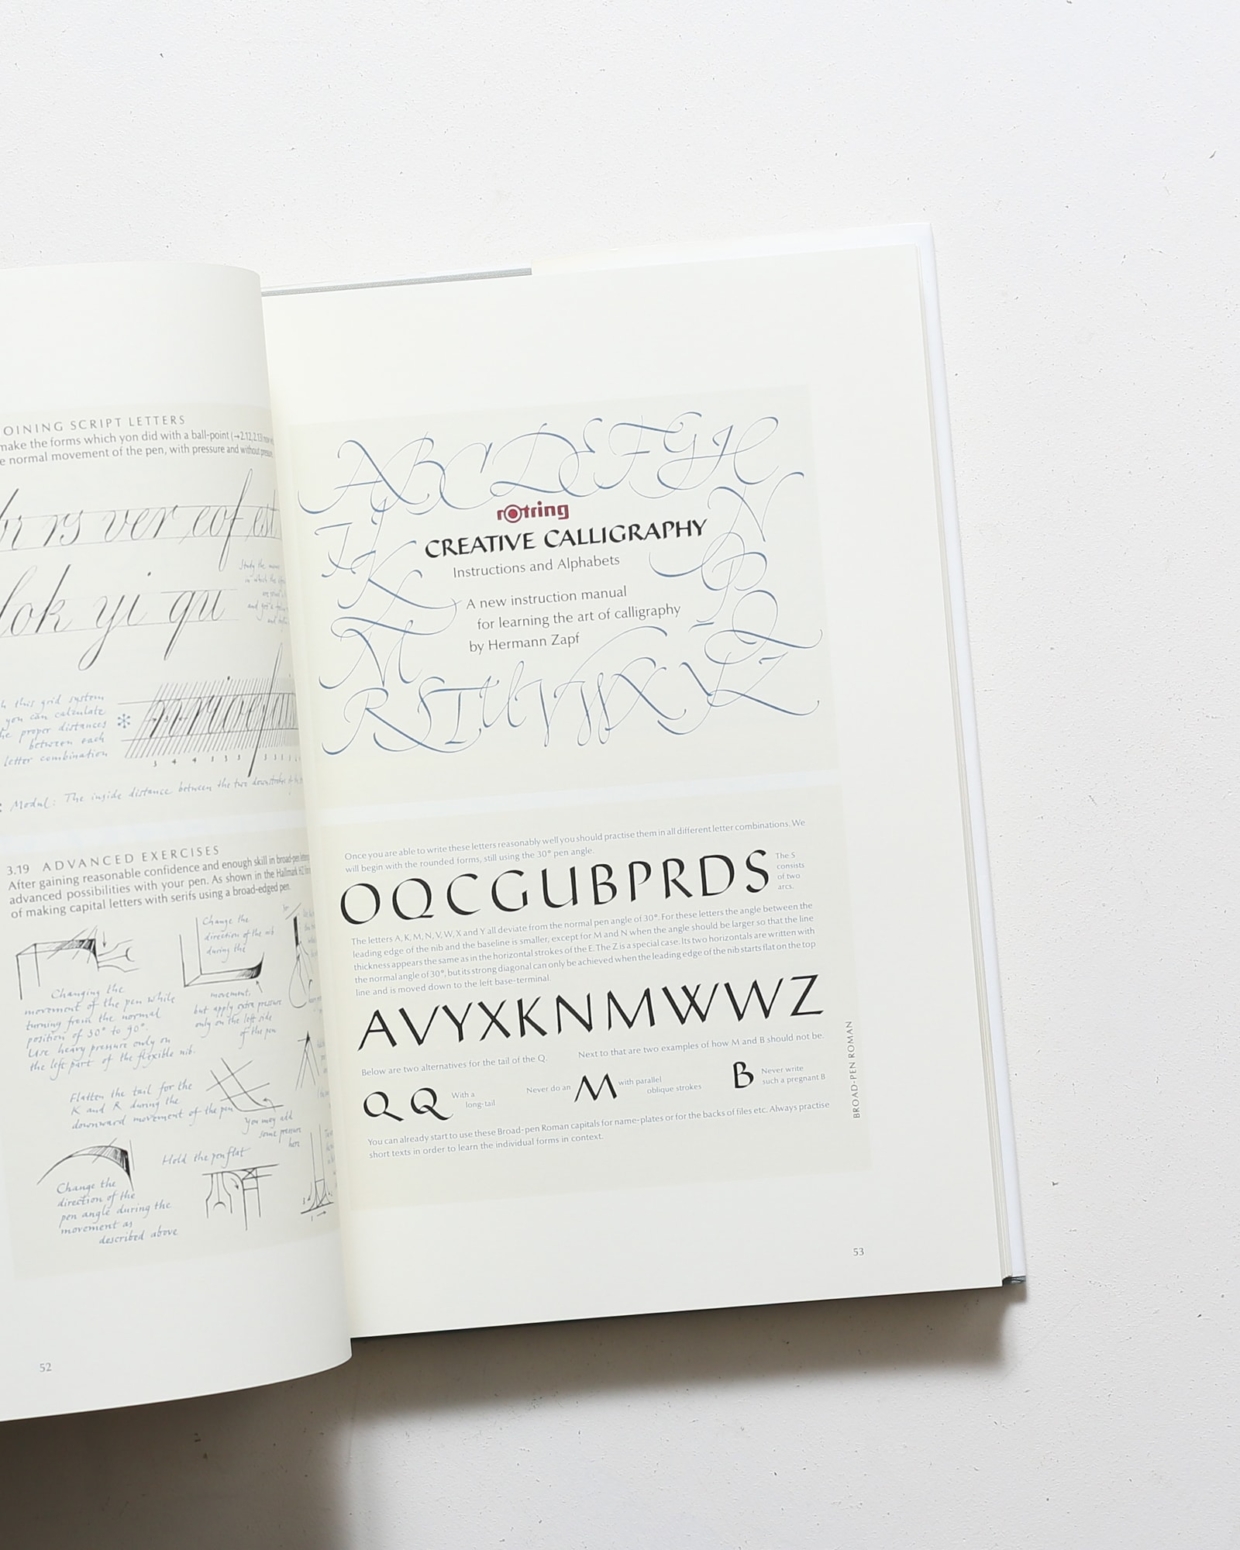 OINING SCRIPT LETTERS
make the forms which yon did with a ball-point (→2.12, 2.13)
e normal movement of the pen, with pressure and without
br rs ver eof est
lok yi qu
Study the
h this grid system
you can calculate
he proper distances
between each
letter combination
Modul: The inside distance between the two downstrokes
3.19 ADVANCED EXERCISES
After gaining reasonable confidence and enough skill in broad-pen
advanced possibilities with your pen. As shown in the Hallmark
of making capital letters with serifs using a broad-edged pen.
Change the
direction of the nib
during the
movement.
but apply extra pressure
only on the left side
of the pen
Changing the
movement of the pen while
turning from the normal
position of 30° to 90°.
Use heavy pressure only on
the left part of the flexible nib.
Flatten the tail for the
K and R during the
downward movement of the pen
You may add
some pressure
here
Hold the pen flat
Change the
direction of the
pen angle during the
movement as
described above
52
ABCDEFGH
IJ
K
N
rotring
CREATIVE CALLIGRAPHY
Instructions and Alphabets
A new instruction manual
for learning the art of calligraphy
by Hermann Zapf
M
P
Q
RSTUVWXYZ
Once you are able to write these letters reasonably well you should practise them in all different letter combinations. We
will begin with the rounded forms, still using the 30° pen angle.
OQCGUBPRDS
The S
consists
of two
arcs.
The letters A, K, M, N, V, W, X and Y all deviate from the normal pen angle of 30°. For these letters the angle between the
leading edge of the nib and the baseline is smaller, except for M and N when the angle should be larger so that the line
thickness appears the same as in the horizontal strokes of the E. The Z is a special case. Its two horizontals are written with
the normal angle of 30°, but its strong diagonal can only be achieved when the leading edge of the nib starts flat on the top
line and is moved down to the left base-terminal.
AVYXKNMWWZ
Below are two alternatives for the tail of the Q.
Next to that are two examples of how M and B should not be.
QQ
With a
long-tail
Never do an
M
with parallel
oblique strokes
B
Never write
such a pregnant B
You can already start to use these Broad-pen Roman capitals for name-plates or for the backs of files etc. Always practise
short texts in order to learn the individual forms in context.
BROAD-PEN ROMAN
53